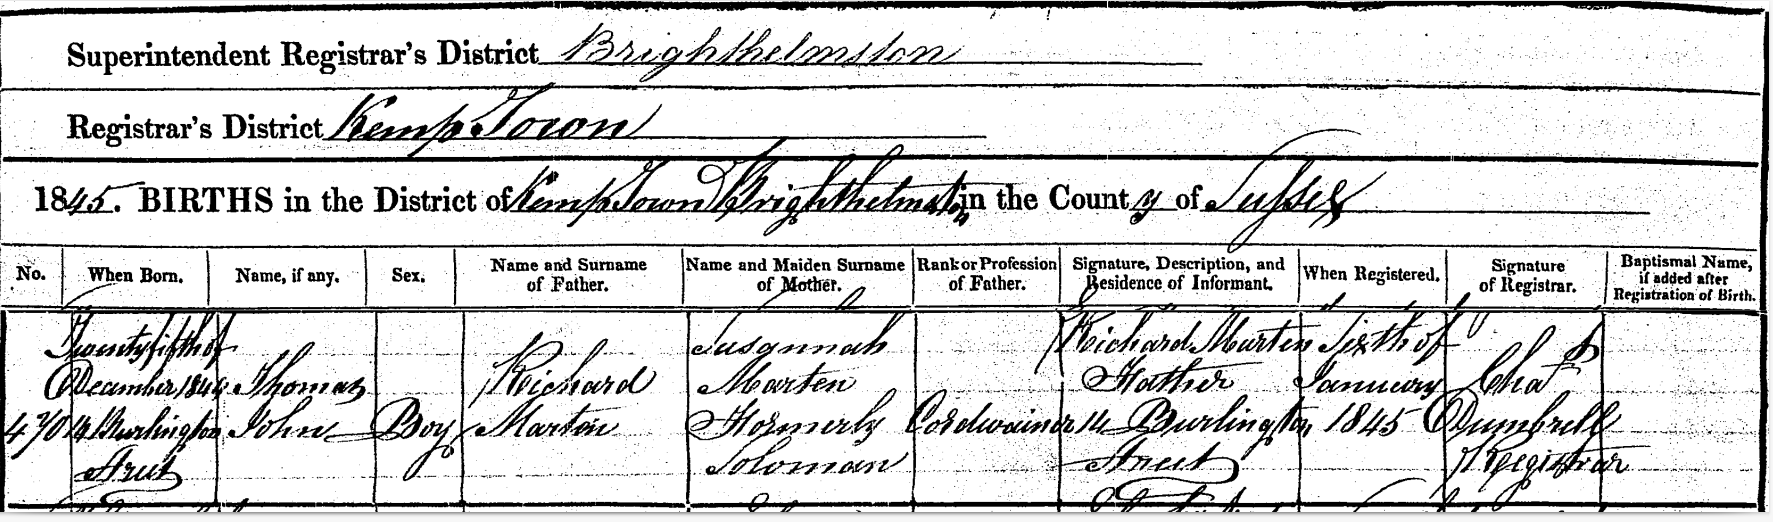 Superintendent Registrar's District Brighthelmston
Registrar's District Kemp Town
1845. BIRTHS in the District of Kemp Town Brighthelmston in the County of Sussex
No.
When Born.
Name, if any.
Sex.
Name and Surname
of Father.
Name and Maiden Surname
of Mother.
Rank or Profession
of Father.
Signature, Description, and
Residence of Informant.
When Registered.
Signature
of Registrar.
Baptismal Name,
if added after
Registration of Birth.
470
Twenty fifth of
December 1844
14 Burlington
Street
Thomas
John
Boy
Richard
Marten
Susannah
Marten
Formerly
Soloman
Cordwainer
Richard Marten
Father
14 Burlington
Street
Sixth of
January
1845
Chas
Dumbrell
Registrar